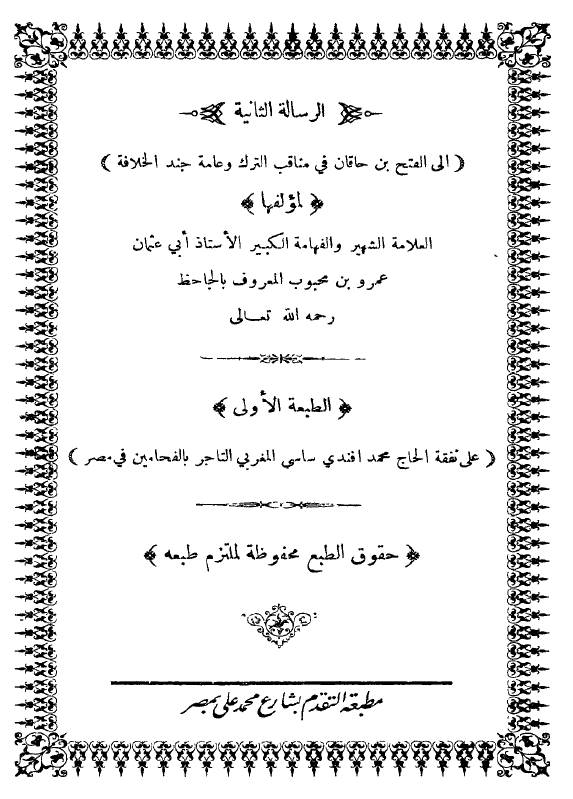 الرسالة الثانية
( الى الفتح بن حاقان في مناقب الترك وعامة جند الخلافة )
﴿ لمؤلفها ﴾
العلامة الشهير والفهامة الكبير الأستاذ أبي عثمان
عمرو بن محبوب المعروف بالجاحظ
رحمه الله تعالى
﴿ الطبعة الأولى ﴾
( على نفقة الحاج محمد افندي ساسى المغربي التاجر بالفحامين في مصر )
﴿ حقوق الطبع محفوظة لملتزم طبعه ﴾
مطبعة التقدم بشارع محمد علي بمصر